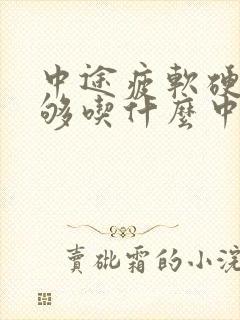 中途疲軟硬
够喫什麽中
賣砒霜的小浣